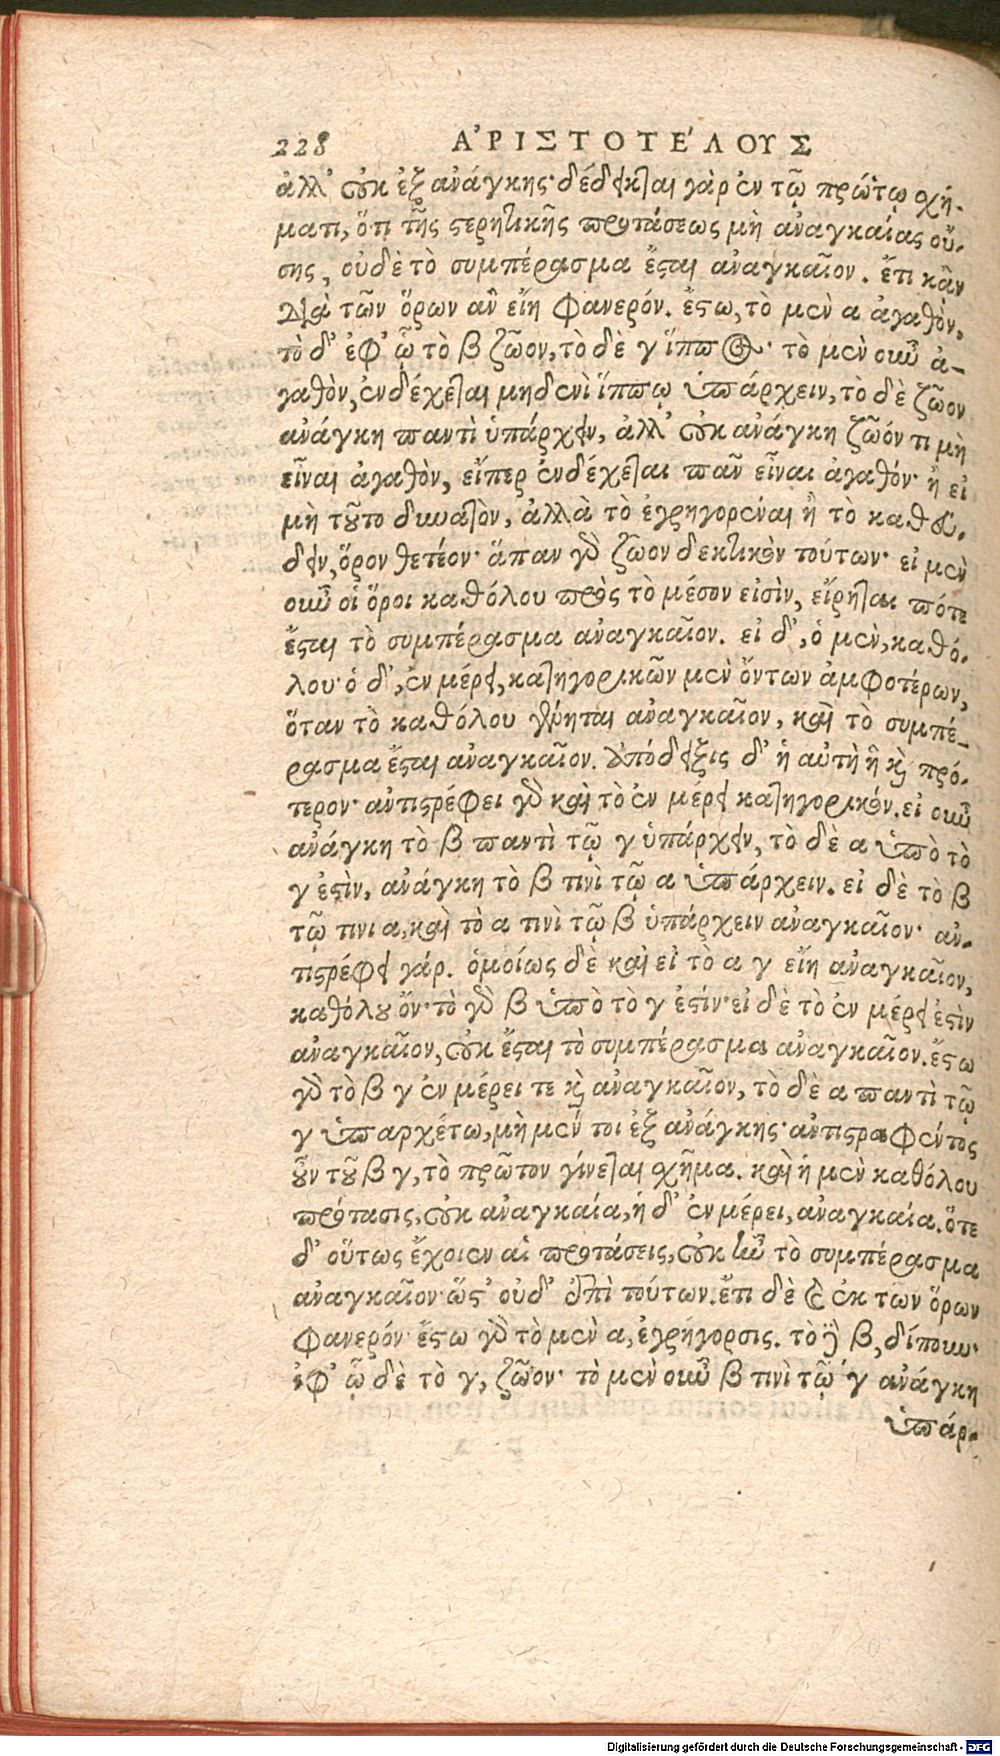 228 ἈΡΙΣΤΟΤΈΛΟΥΣ
ἀλλ' οὐκ ἐξ ἀνάγκης· δέδεικται γὰρ ἐν τῷ πρώτῳ σχή-
ματι, ὅτι τῆς στερητικῆς προτάσεως μὴ ἀναγκαίας οὔ-
σης, οὐδὲ τὸ συμπέρασμα ἔσται ἀναγκαῖον. ἔτι κἂν
διὰ τῶν ὅρων ἂν εἴη φανερόν. ἔστω, τὸ μὲν α ἀγαθὸν,
τὸ δ' ἐφ' ᾧ τὸ β ζῶον, τὸ δὲ γ ἵππος· τὸ μὲν οὖν ἀ-
γαθὸν, ἐνδέχεται μηδενὶ ἵππῳ ὑπάρχειν, τὸ δὲ ζῶον
ἀνάγκη παντὶ ὑπάρχειν, ἀλλ' οὐκ ἀνάγκη ζῶόν τι μὴ
εἶναι ἀγαθὸν, εἴπερ ἐνδέχεται πᾶν εἶναι ἀγαθόν· ἢ εἰ
μὴ τοῦτο δυνατὸν, ἀλλὰ τὸ ἐγρηγορέναι ἢ τὸ καθεύ-
δειν, ὅρον θετέον· ἅπαν γὰρ ζῶον δεκτικὸν τούτων· εἰ μὲν
οὖν οἱ ὅροι καθόλου πρὸς τὸ μέσον εἰσὶν, εἴρηται πότε
ἔσται τὸ συμπέρασμα ἀναγκαῖον. εἰ δ', ὁ μὲν, καθό-
λου· ὁ δ', ἐν μέρει, κατηγορικῶν μὲν ὄντων ἀμφοτέρων,
ὅταν τὸ καθόλου γένηται ἀναγκαῖον, καὶ τὸ συμπέ-
ρασμα ἔσται ἀναγκαῖον. ἀπόδειξις δ' ἡ αὐτὴ ἣ καὶ πρό-
τερον· ἀντιστρέφει γὰρ καὶ τὸ ἐν μέρει κατηγορικόν. εἰ οὖν
ἀνάγκη τὸ β παντὶ τῷ γ ὑπάρχειν, τὸ δὲ α ὑπὸ τὸ
γ ἐστὶν, ἀνάγκη τὸ β τινὶ τῷ α ὑπάρχειν. εἰ δὲ τὸ β
τῷ τινι α, καὶ τὸ α τινὶ τῷ β ὑπάρχειν ἀναγκαῖον· ἀν-
τιστρέφει γάρ. ὁμοίως δὲ καὶ εἰ τὸ α γ εἴη ἀναγκαῖον,
καθόλου ὄν· τὸ γὰρ β ὑπὸ τὸ γ ἐστίν· εἰ δὲ τὸ ἐν μέρει ἐστὶν
ἀναγκαῖον, οὐκ ἔσται τὸ συμπέρασμα ἀναγκαῖον. ἔστω
γὰρ τὸ β γ ἐν μέρει τε καὶ ἀναγκαῖον, τὸ δὲ α παντὶ τῷ
γ ὑπαρχέτω, μὴ μέν τοι ἐξ ἀνάγκης· ἀντιστραφέντος
οὖν τοῦ β γ, τὸ πρῶτον γίνεται σχῆμα. καὶ ἡ μὲν καθόλου
πρότασις, οὐκ ἀναγκαία, ἡ δ' ἐν μέρει, ἀναγκαία. ὅτε
δ' οὕτως ἔχοιεν αἱ προτάσεις, οὐκ ἦν τὸ συμπέρασμα
ἀναγκαῖον· ὥστ' οὐδ' ἐπὶ τούτων. ἔτι δὲ καὶ ἐκ των ὅρων
φανερόν· ἔστω γὰρ τὸ μὲν α, ἐγρήγορσις. τὸ δὲ β, δίπουν·
ἐφ' ᾧ δὲ τὸ γ, ζῶον· τὸ μὲν οὖν β τινὶ τῷ γ ἀνάγκη
ὑπάρ-
Digitalisierung gefördert durch die Deutsche Forschungsgemeinschaft - DFG